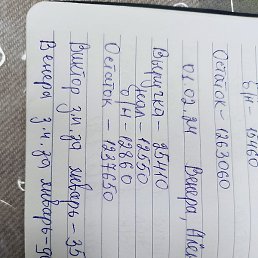 б/н - 15460
Остаток - 1263060
01.02.24 Венера,
Выручка - 25410
нал - 12550
б/н - 12860
Остаток - 1237650
Виктор з.п. за январь - 35
Венера з.п. за январь -